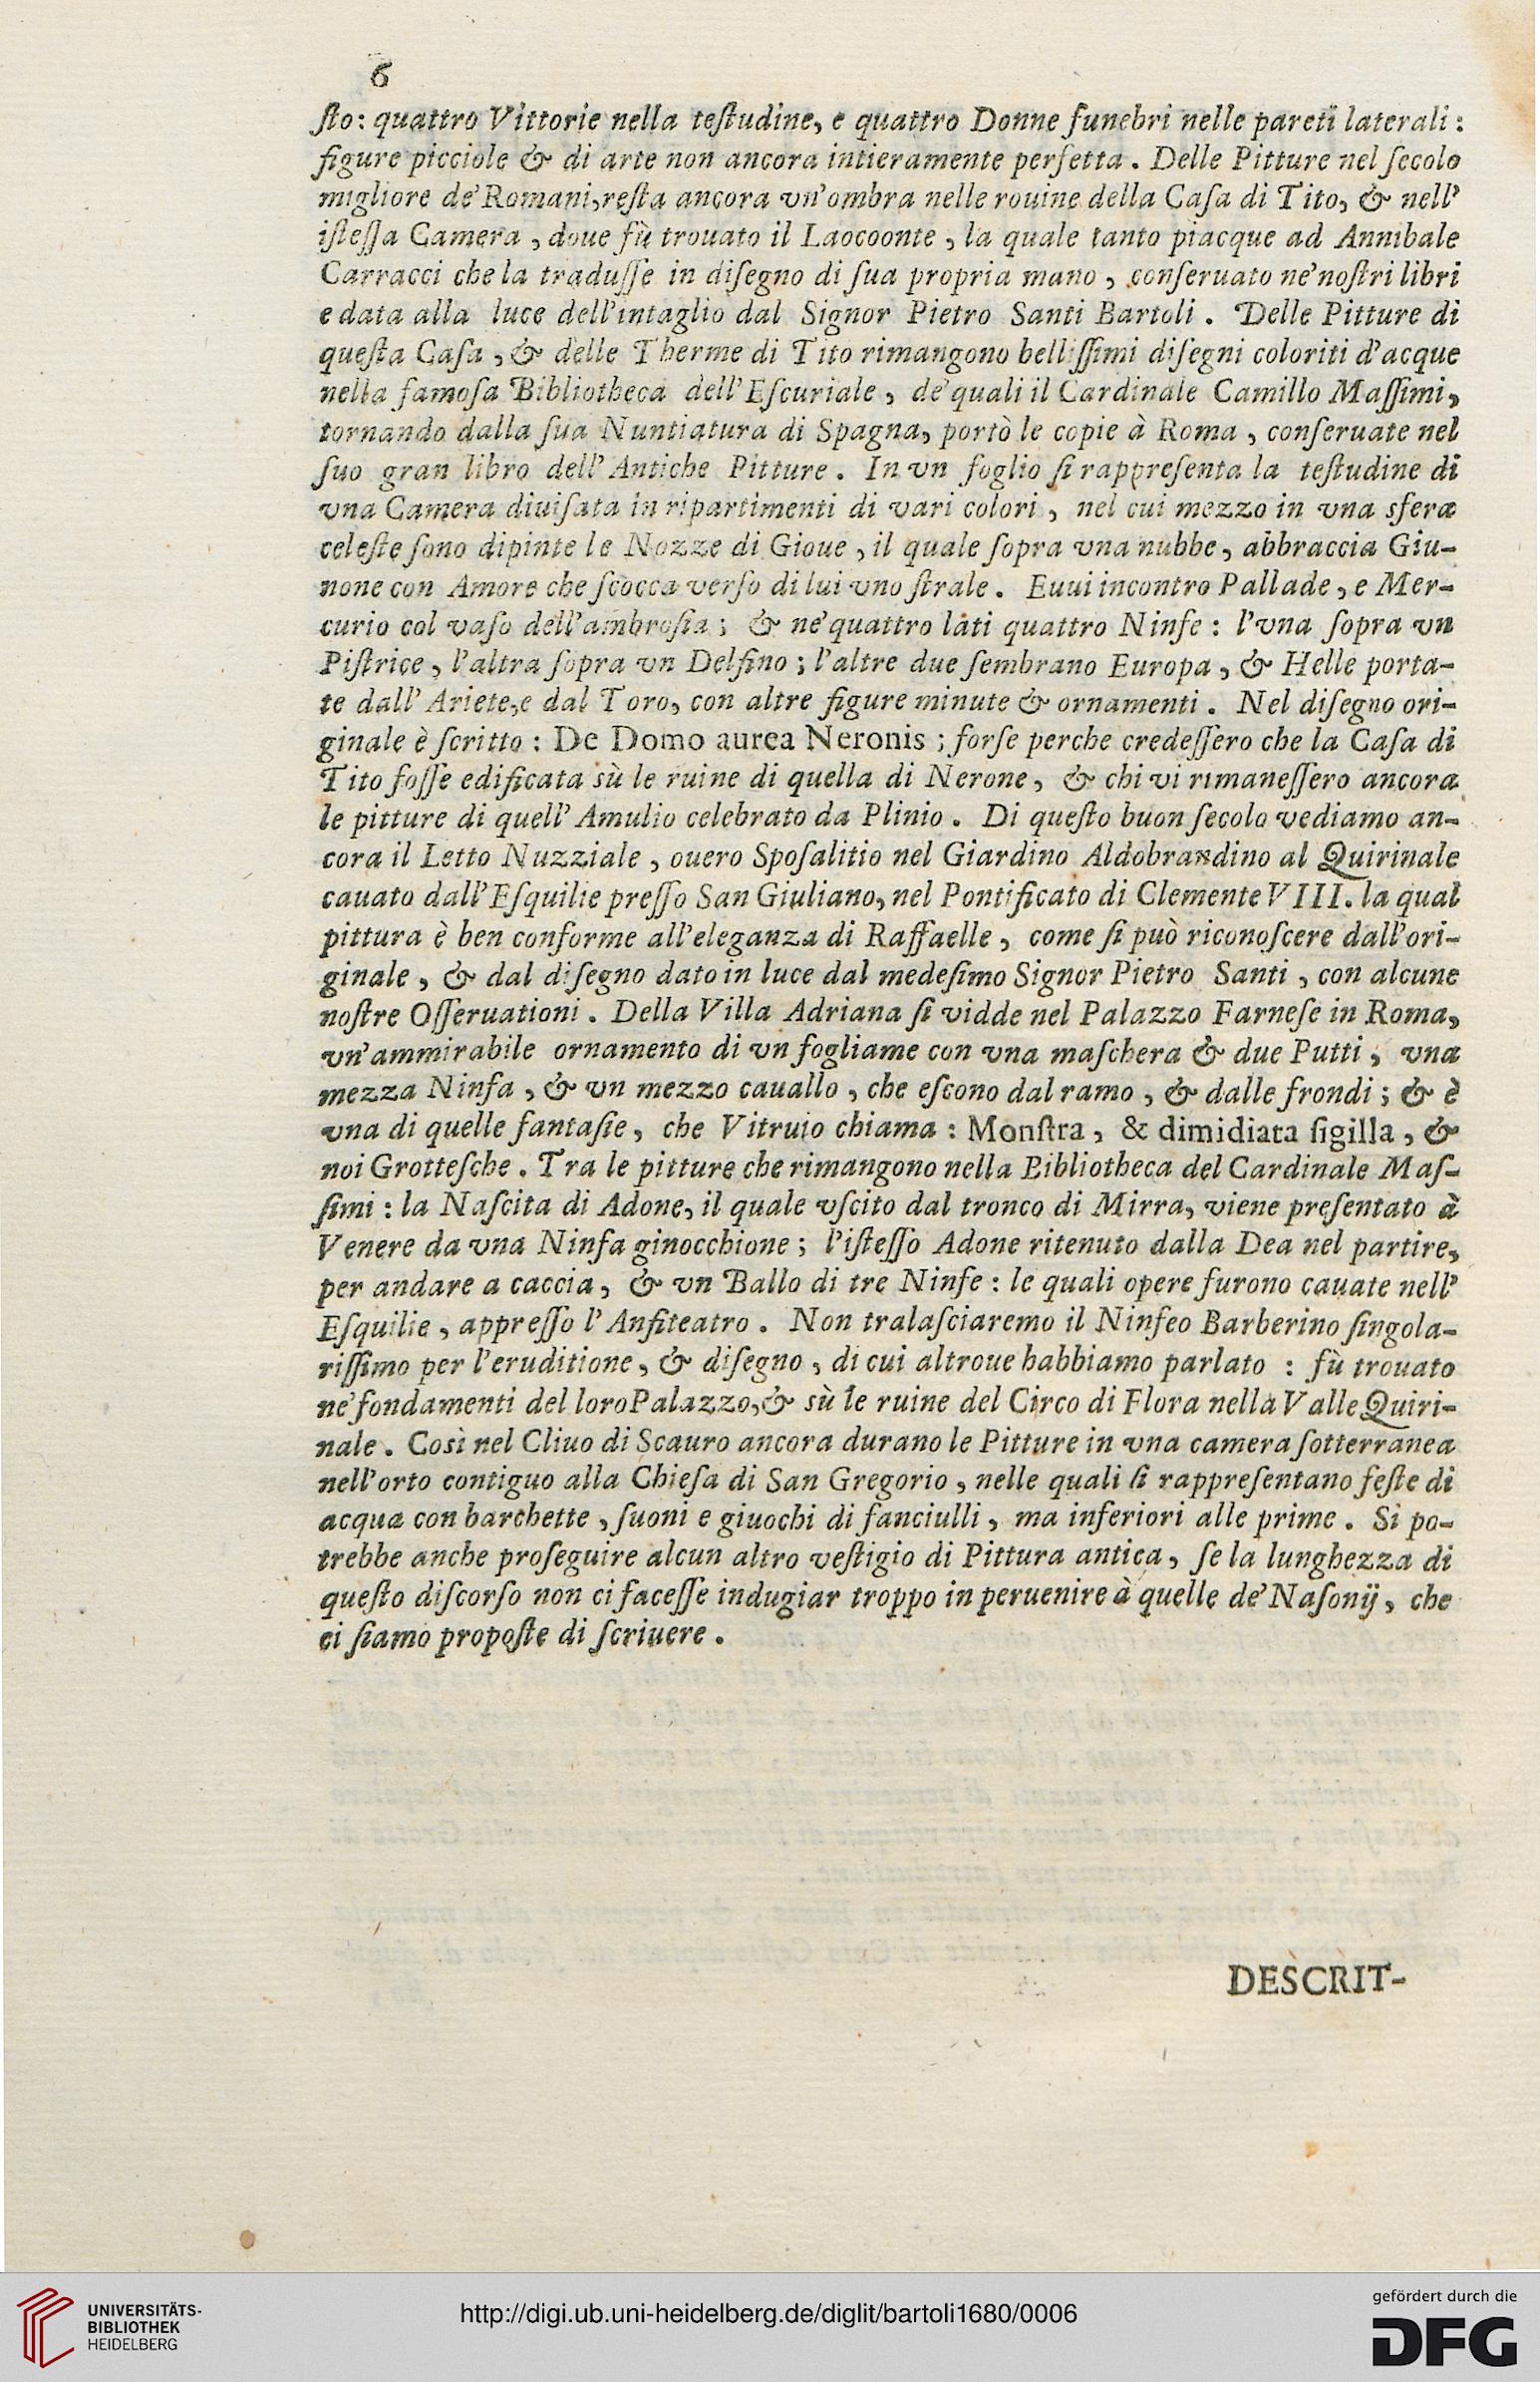 6
ſto: quattro Vittorie nella teſtudine, e quattro Donne funebri nelle pareti laterali:
figure picciole & di arte non ancora intieramente perfetta. Delle Pitture nel ſecolo
migliore de' Romani, reſta ancora vn'ombra nelle rouine della Caſa di Tito, & nell'
iſteſſa Camera, doue fù trouato il Laocoonte, la quale tanto piacque ad Annibale
Carracci che la traduſſe in diſegno di ſua propria mano, conſeruato ne' noſtri libri
e data alla luce dell'intaglio dal Signor Pietro Santi Bartoli. Delle Pitture di
queſta Caſa, & delle Therme di Tito rimangono belliſſimi diſegni coloriti d'acque
nella famoſa Bibliotheca dell' Eſcuriale, de' quali il Cardinale Camillo Maſſimi,
tornando dalla ſua Nuntiatura di Spagna, portò le copie à Roma, conſeruate nel
ſuo gran libro dell' Antiche Pitture. In vn foglio ſi rappreſenta la teſtudine di
vna Camera diuiſata in ripartimenti di vari colori, nel cui mezzo in vna sfera
celeſte ſono dipinte le Nozze di Gioue, il quale ſopra vna nubbe, abbraccia Giu-
none con Amore che ſcocca verſo di lui vno ſtrale. Euui incontro Pallade, e Mer-
curio col vaſo dell'ambroſia; & ne' quattro lati quattro Ninfe: l'vna ſopra vn
Piſtrice, l'altra ſopra vn Delfino; l'altre due ſembrano Europa, & Helle porta-
te dall' Ariete, e dal Toro, con altre figure minute & ornamenti. Nel diſegno ori-
ginale è ſcritto: De Domo aurea Neronis; forſe perche credeſſero che la Caſa di
Tito foſſe edificata sù le ruine di quella di Nerone, & chi vi rimaneſſero ancora
le pitture di quell' Amulio celebrato da Plinio. Di queſto buon ſecolo vediamo an-
cora il Letto Nuzziale, ouero Spoſalitio nel Giardino Aldobrandino al Quirinale
cauato dall' Eſquilie preſſo San Giuliano, nel Pontificato di Clemente VIII. la qual
pittura è ben conforme all'eleganza di Raffaelle, come ſi può riconoſcere dall'ori-
ginale, & dal diſegno dato in luce dal medeſimo Signor Pietro Santi, con alcune
noſtre Oſſeruationi. Della Villa Adriana ſi vidde nel Palazzo Farneſe in Roma,
vn'ammirabile ornamento di vn fogliame con vna maſchera & due Putti, vna
mezza Ninfa, & vn mezzo cauallo, che eſcono dal ramo, & dalle frondi; & è
vna di quelle fantaſie, che Vitruio chiama: Monſtra, & dimidiata ſigilla, &
noi Grotteſche. Tra le pitture che rimangono nella Bibliotheca del Cardinale Maſ-
ſimi: la Naſcita di Adone, il quale vſcito dal tronco di Mirra, viene preſentato à
Venere da vna Ninfa ginocchione; l'iſteſſo Adone ritenuto dalla Dea nel partire,
per andare a caccia, & vn Ballo di tre Ninfe: le quali opere furono cauate nell'
Eſquilie, appreſſo l' Anfiteatro. Non tralaſciaremo il Ninfeo Barberino ſingola-
riſſimo per l'eruditione, & diſegno, di cui altroue habbiamo parlato: fù trouato
ne' fondamenti del loro Palazzo, & sù le ruine del Circo di Flora nella Valle Quiri-
nale. Così nel Cliuo di Scauro ancora durano le Pitture in vna camera ſotterranea
nell'orto contiguo alla Chieſa di San Gregorio, nelle quali ſi rappreſentano feſte di
acqua con barchette, ſuoni e giuochi di fanciulli, ma inferiori alle prime. Si po-
trebbe anche proſeguire alcun altro veſtigio di Pittura antica, ſe la lunghezza di
queſto diſcorſo non ci faceſſe indugiar troppo in peruenire à quelle de' Naſonij, che
ci ſiamo propoſte di ſcriuere.
DESCRIT-
UNIVERSITÄTS-
BIBLIOTHEK
HEIDELBERG
http://digi.ub.uni-heidelberg.de/diglit/bartoli1680/0006
gefördert durch die
DFG